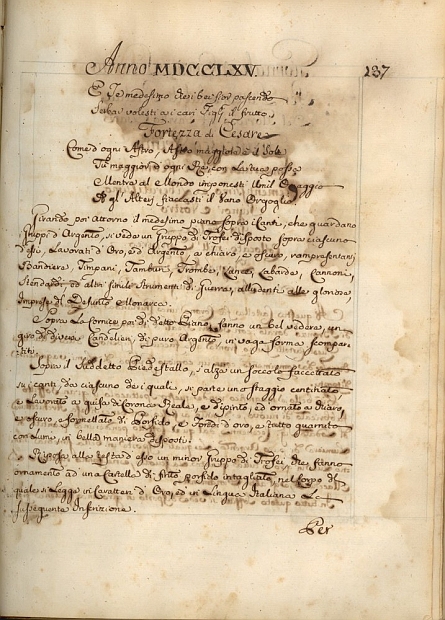 Anno MDCCLXV. 187
E Te medesimo de i bei fior pascendo
Serbar volesti a i cari Figlj il frutto.
Fortezza di Cesare
Come d'ogni Astro, Astro maggiore è il Sole
Tu maggior d'ogni Re, con La tua possa
Mentre al Mondo imponesti
gl' Alteri, fiaccasti il vano Orgoglio
Girando poi attorno il medesimo piano sopra i Canti, che guardano
Gruppi d'Argento, si vede un Gruppo di Trofei disposto sopra ciascuno
d'essi, Lavorati d'Oro, ed Argento, a chiaro, e oscuro, rampresentanti
Bandiere, Timpani, Tamburi, Trombe, Lance, Labarde, Cannoni,
Stendardi, ed altri simili Strumenti di Guerra, alludenti alle gloriose
Imprese del Defunto Monarca.
Sopra La Cornice poi di detto Piano, fanno un bel vedere, un
giro di diversi Candelieri, di puro Argento, in vaga forma scompar-
titi.
Sopra il Suddetto Piedestallo, s'alza un Soccolo faccettato
su i canti, da ciascuno de i quali, si parte un ostaggio centinato
e Lavorato a guisa di Corona Reale, e dipinto, ed ornato a chiaro,
e oscuro, di Porfido, e Fondi d'oro, e tutto guarnito
con Lumi, in bella maniera disposti.
Riposa alla testa d'esso un minor Gruppo di Trofei, che fanno
ornamento ad una Cartella di finto porfido intagliata, nel corpo di
quale si Legge in Caratteri d'Oro, ed in Lingua Italiana La
sussequente Inscrizione.
Per